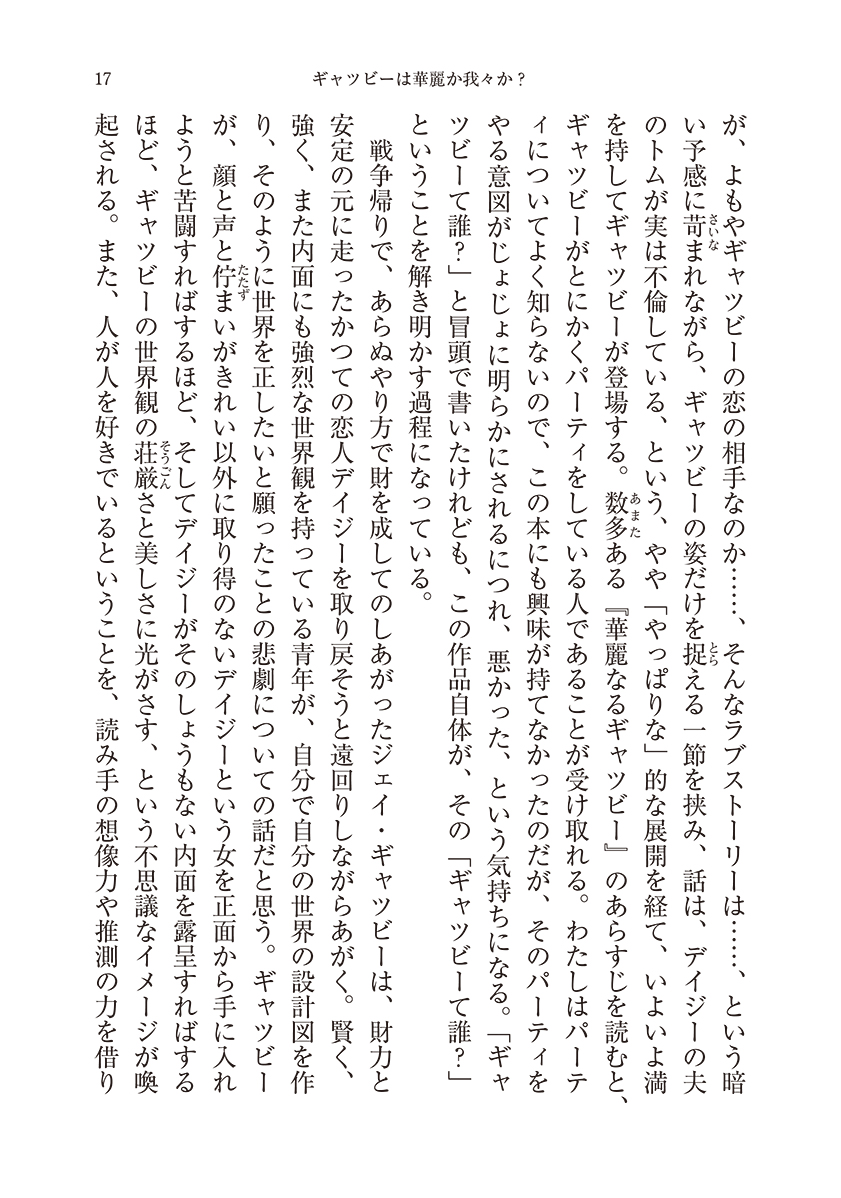 17
ギャツビーは華麗か我々か？
が、よもやギャツビーの恋の相手なのか……、そんなラブストーリーは……、という暗
い予感に苛まれながら、ギャツビーの姿だけを捉える一節を挟み、話は、デイジーの夫
のトムが実は不倫している、という、やや「やっぱりな」的な展開を経て、いよいよ満
を持してギャツビーが登場する。数多ある『華麗なるギャツビー』のあらすじを読むと、
ギャツビーがとにかくパーティをしている人であることが受け取れる。わたしはパーテ
ィについてよく知らないので、この本にも興味が持てなかったのだが、そのパーティを
やる意図がじょじょに明らかにされるにつれ、悪かった、という気持ちになる。「ギャ
ツビーて誰？」と冒頭で書いたけれども、この作品自体が、その「ギャツビーて誰？」
ということを解き明かす過程になっている。
戦争帰りで、あらぬやり方で財を成してのしあがったジェイ・ギャツビーは、財力と
安定の元に走ったかつての恋人デイジーを取り戻そうと遠回りしながらあがく。賢く、
強く、また内面にも強烈な世界観を持っている青年が、自分で自分の世界の設計図を作
り、そのように世界を正したいと願ったことの悲劇についての話だと思う。ギャツビー
が、顔と声と佇まいがきれい以外に取り得のないデイジーという女を正面から手に入れ
ようと苦闘すればするほど、そしてデイジーがそのしょうもない内面を露呈すればする
ほど、ギャツビーの世界観の荘厳さと美しさに光がさす、という不思議なイメージが喚
起される。また、人が人を好きでいるということを、読み手の想像力や推測の力を借り
さいな
とら
あまた
たたず
そうごん